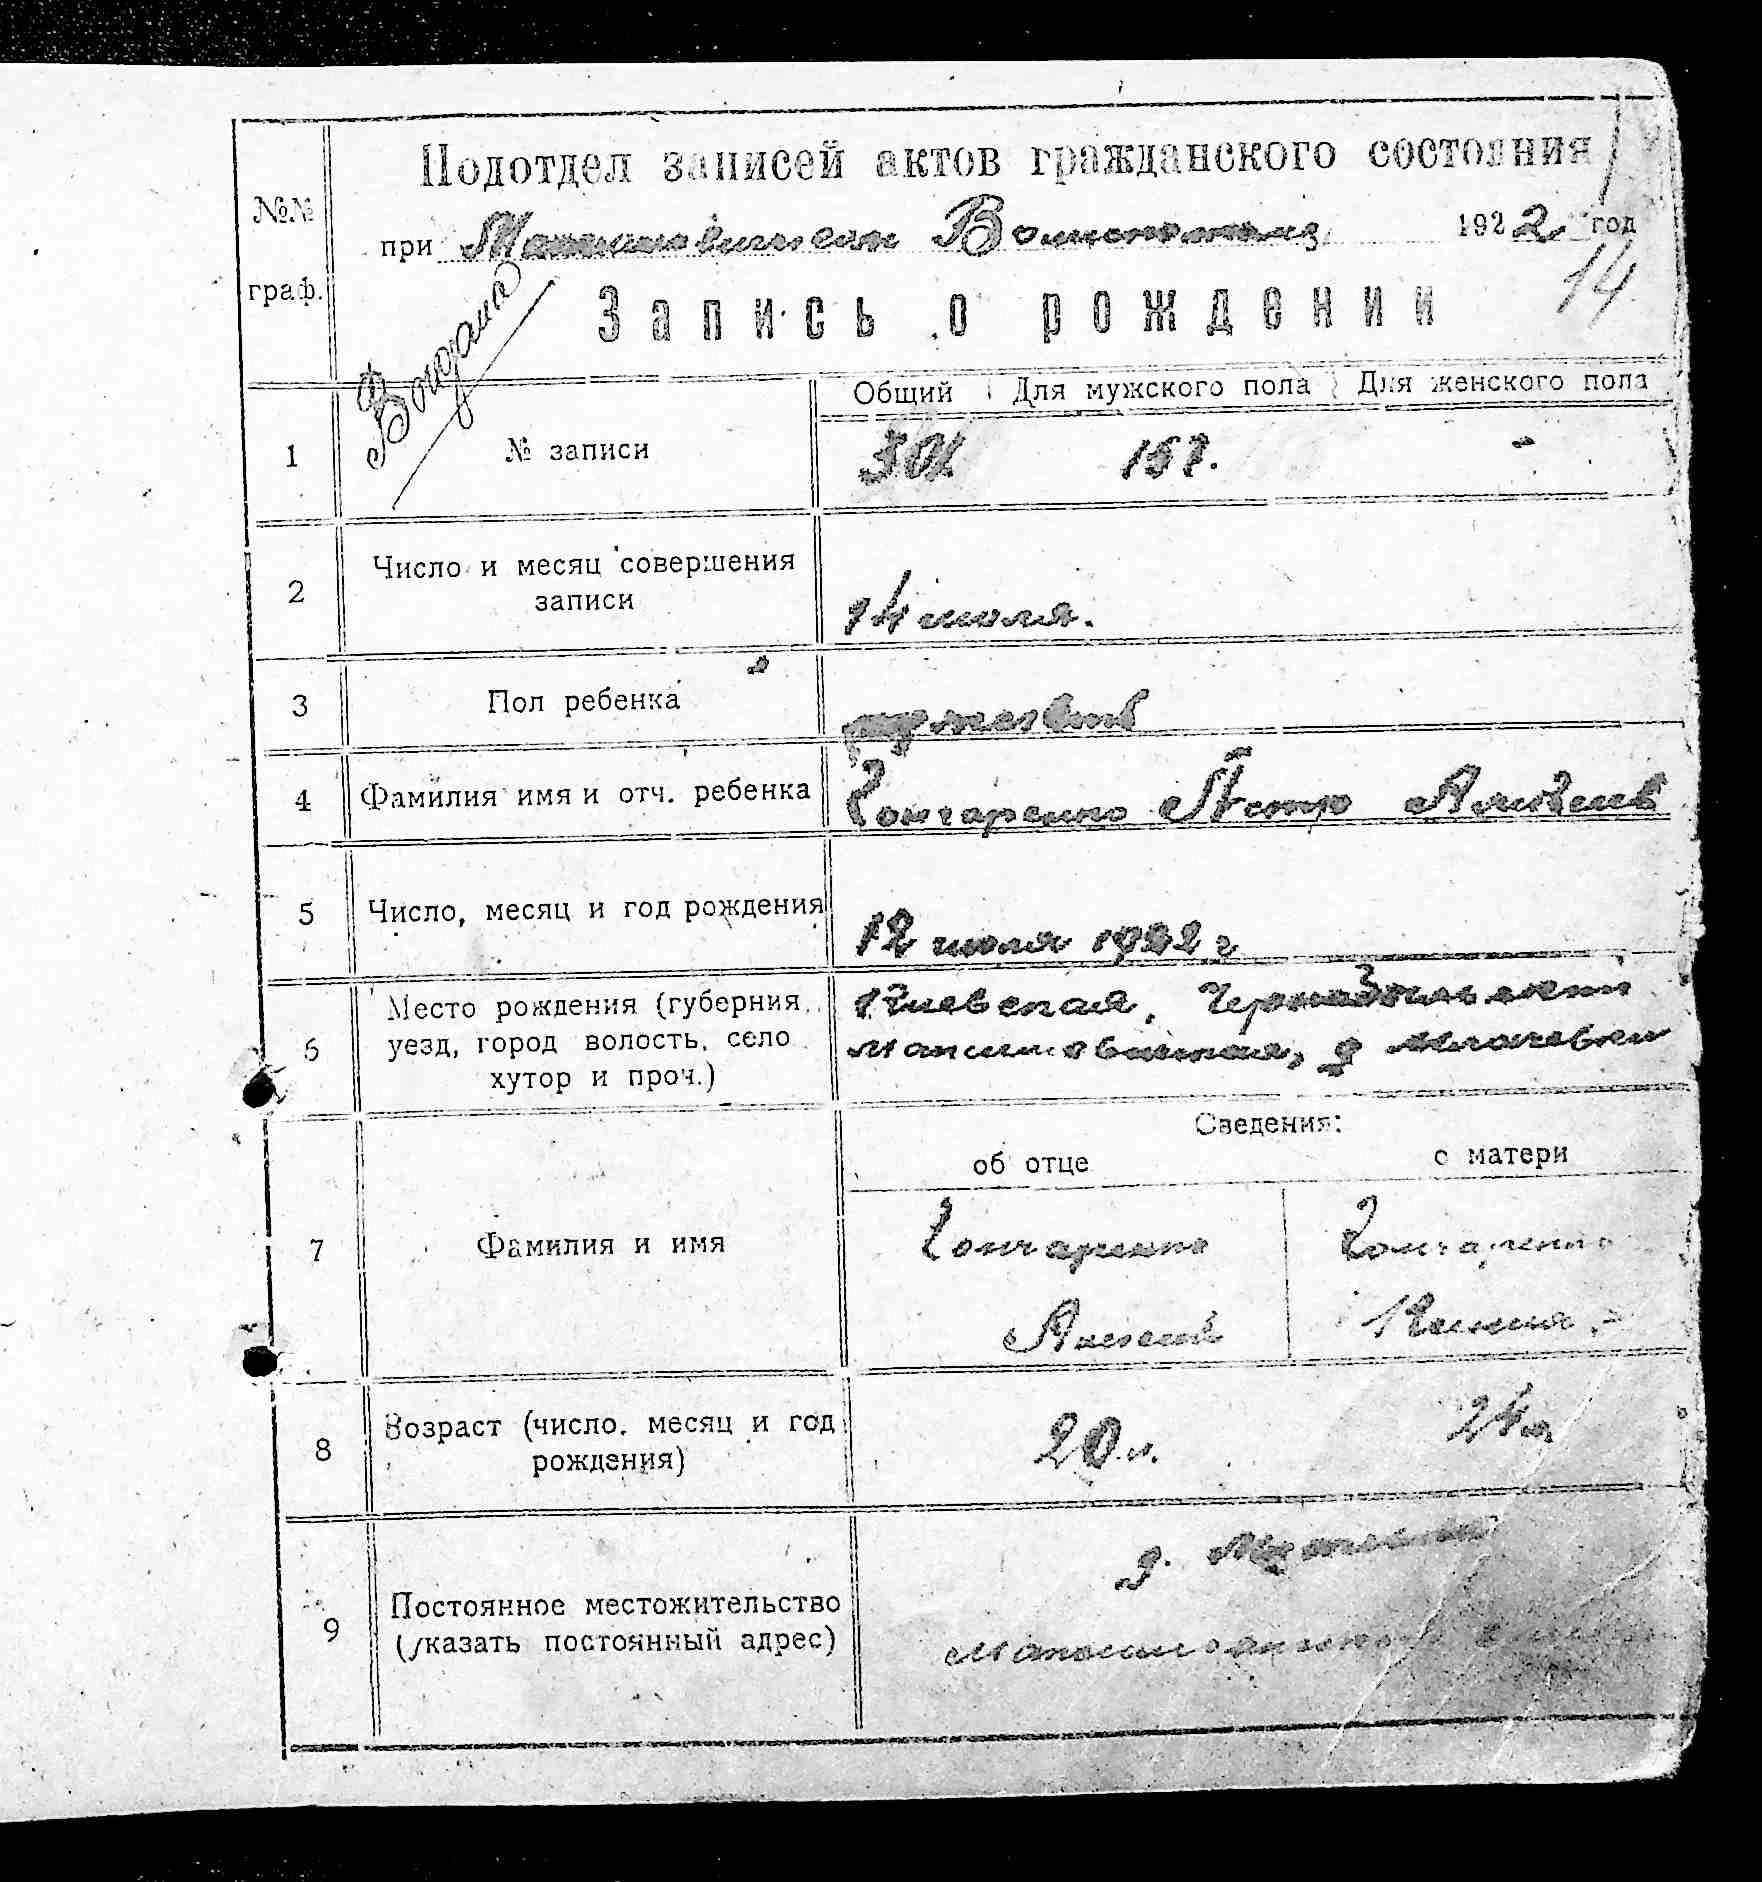 Подотдел записей актов гражданского состояния
при Максимовичском Волисполкоме 1922 год
14
№№ граф.
Запись о рождении
Общий Для мужского пола Для женского пола
1 № записи 157. -
2 Число и месяц совершения
записи
14 июля.
3 Пол ребенка мужеский
4 Фамилия имя и отч. ребенка Гончаренко Петр Алексеев
5 Число, месяц и год рождения 12 июля 1922 г
6 Место рождения (губерния,
уезд, город волость, село
хутор и проч.)
Киевская, Чернобыльский
Максимовичская, д
Сведения:
об отце о матери
7 Фамилия и имя
Гончаренко Гончаренко
Алексей Ксения
8 Возраст (число, месяц и год
рождения)
20 л. 24 л
9 Постоянное местожительство
(указать постоянный адрес)
д.
Максимовичской